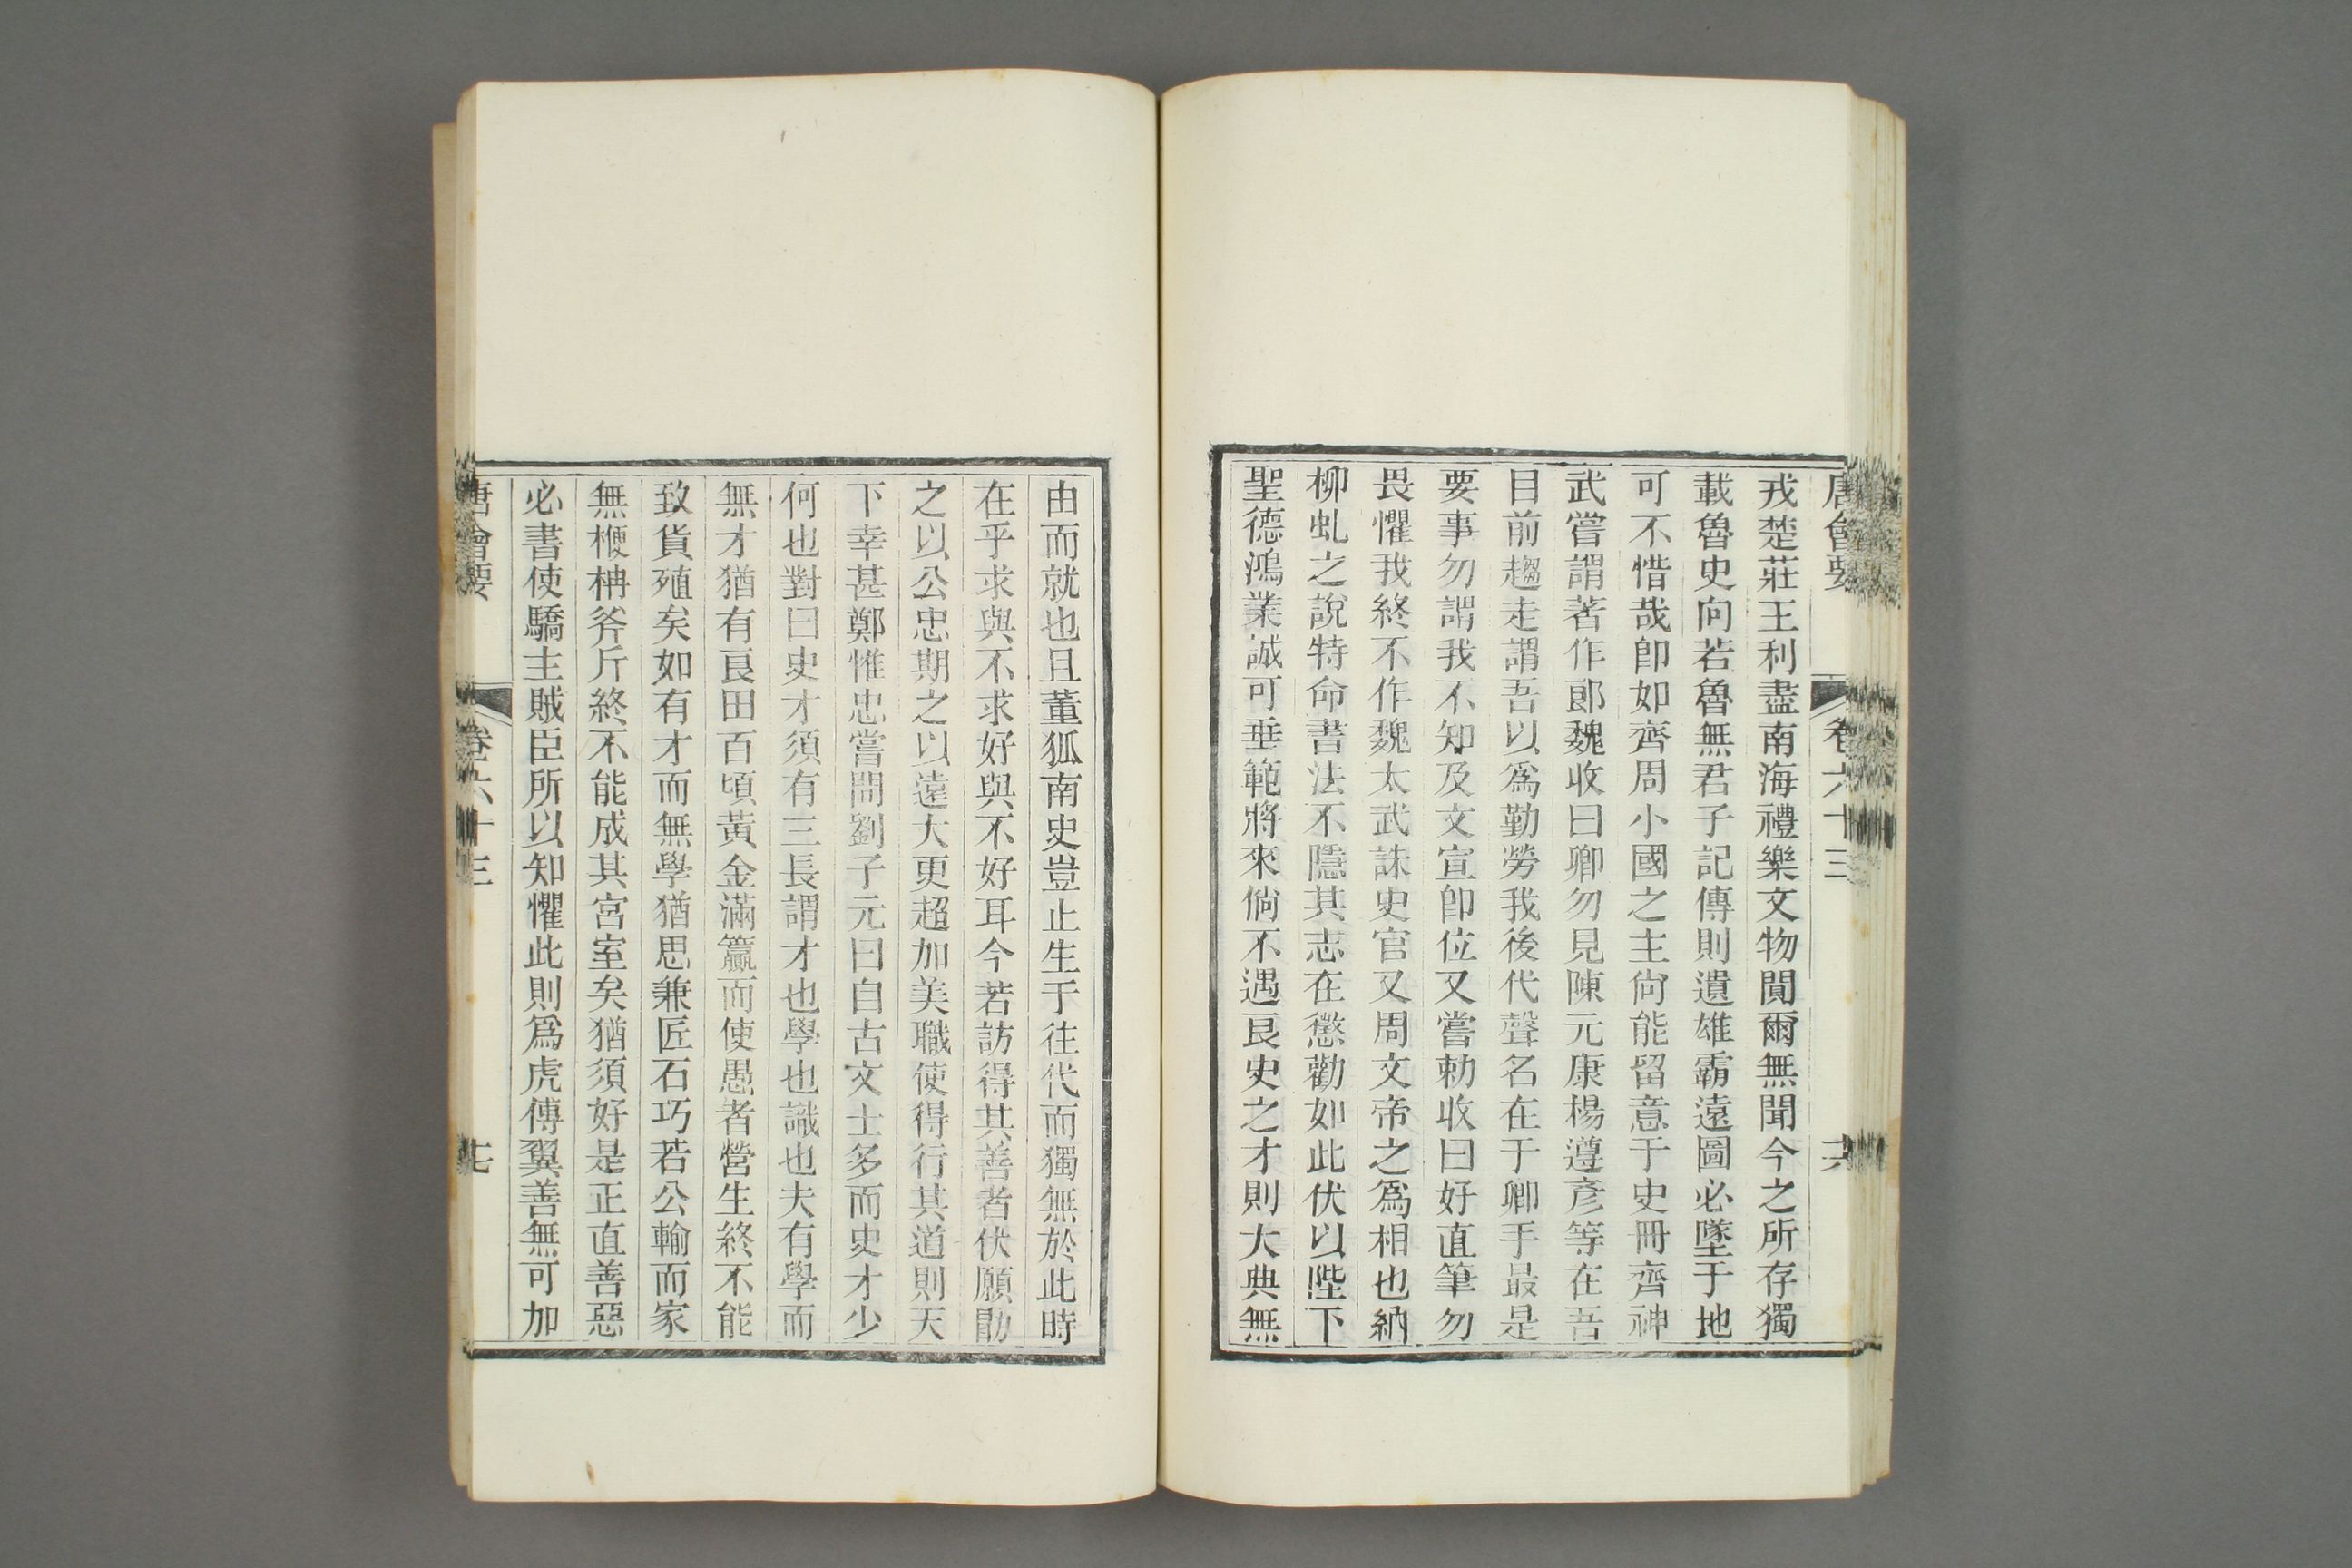 唐會要 卷六十三 十六
戎楚莊王利盡南海禮樂文物闃爾無聞今之所存獨
載魯史向若魯無君子記傳則遺雄霸遠圖必墜于地
可不惜哉卽如齊周小國之主尙能留意于史冊齊神
武嘗謂著作郞魏收曰卿勿見陳元康楊遵彥等在吾
目前趨走謂吾以爲勤勞我後代聲名在于卿手最是
要事勿謂我不知及文宣卽位又嘗勅收曰好直筆勿
畏懼我終不作魏太武誅史官又周文帝之爲相也納
柳虬之說特命書法不隱其志在懲勸如此伏以陛下
聖德鴻業誠可垂範將來倘不遇良史之才則大典無
由而就也且董狐南史豈止生于往代而獨無於此時
在乎求與不求好與不好耳今若訪得其善者伏願勖
之以公忠期之以遠大更超加美職使得行其道則天
下幸甚鄭惟忠嘗問劉子元曰自古文士多而史才少
何也對曰史才須有三長謂才也學也識也夫有學而
無才猶有良田百頃黃金滿籯而使愚者營生終不能
致貨殖矣如有才而無學猶思兼匠石巧若公輸而家
無楩柟斧斤終不能成其宮室矣猶須好是正直善惡
必書使驕主賊臣所以知懼此則爲虎傅翼善無可加
唐會要 卷六十三 十七